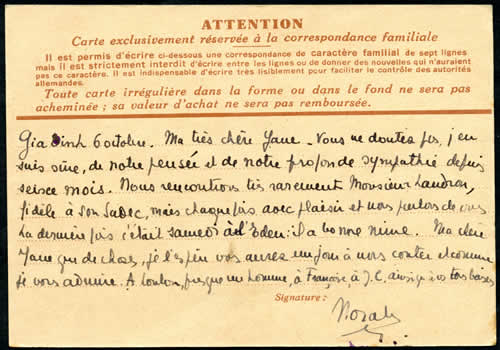 ATTENTION
Carte exclusivement réservée à la correspondance familiale
Il est permis d'écrire ci-dessous une correspondance de caractère familial de sept lignes
mais il est strictement interdit d'écrire entre les lignes ou de donner des nouvelles qui n'auraient
pas ce caractère. Il est indispensable d'écrire très lisiblement pour faciliter le contrôle des autorités
allemandes.
Toute carte irrégulière dans la forme ou dans le fond ne sera pas
acheminée ; sa valeur d'achat ne sera pas remboursée.
Gia Dinh 6 octobre. Ma très chère Yane. Vous ne doutez pas, j'en
suis sûre, de notre pensée et de notre profonde sympathie depuis
seize mois. Nous rencontrons très rarement Monsieur Landron,
fidèle à son Sadec, mais chaque fois avec plaisir et nous parlons de vous
La dernière fois c'était samedi à l'Eden : il a bonne mine. Ma chère
Yane que de choses, je l'espère vous aurez un jour à nous conter et comme
je vous admire. A Loulou, presque un homme, à Françoise à J.C. ainsi qu'à vos bons baisers
Signature :